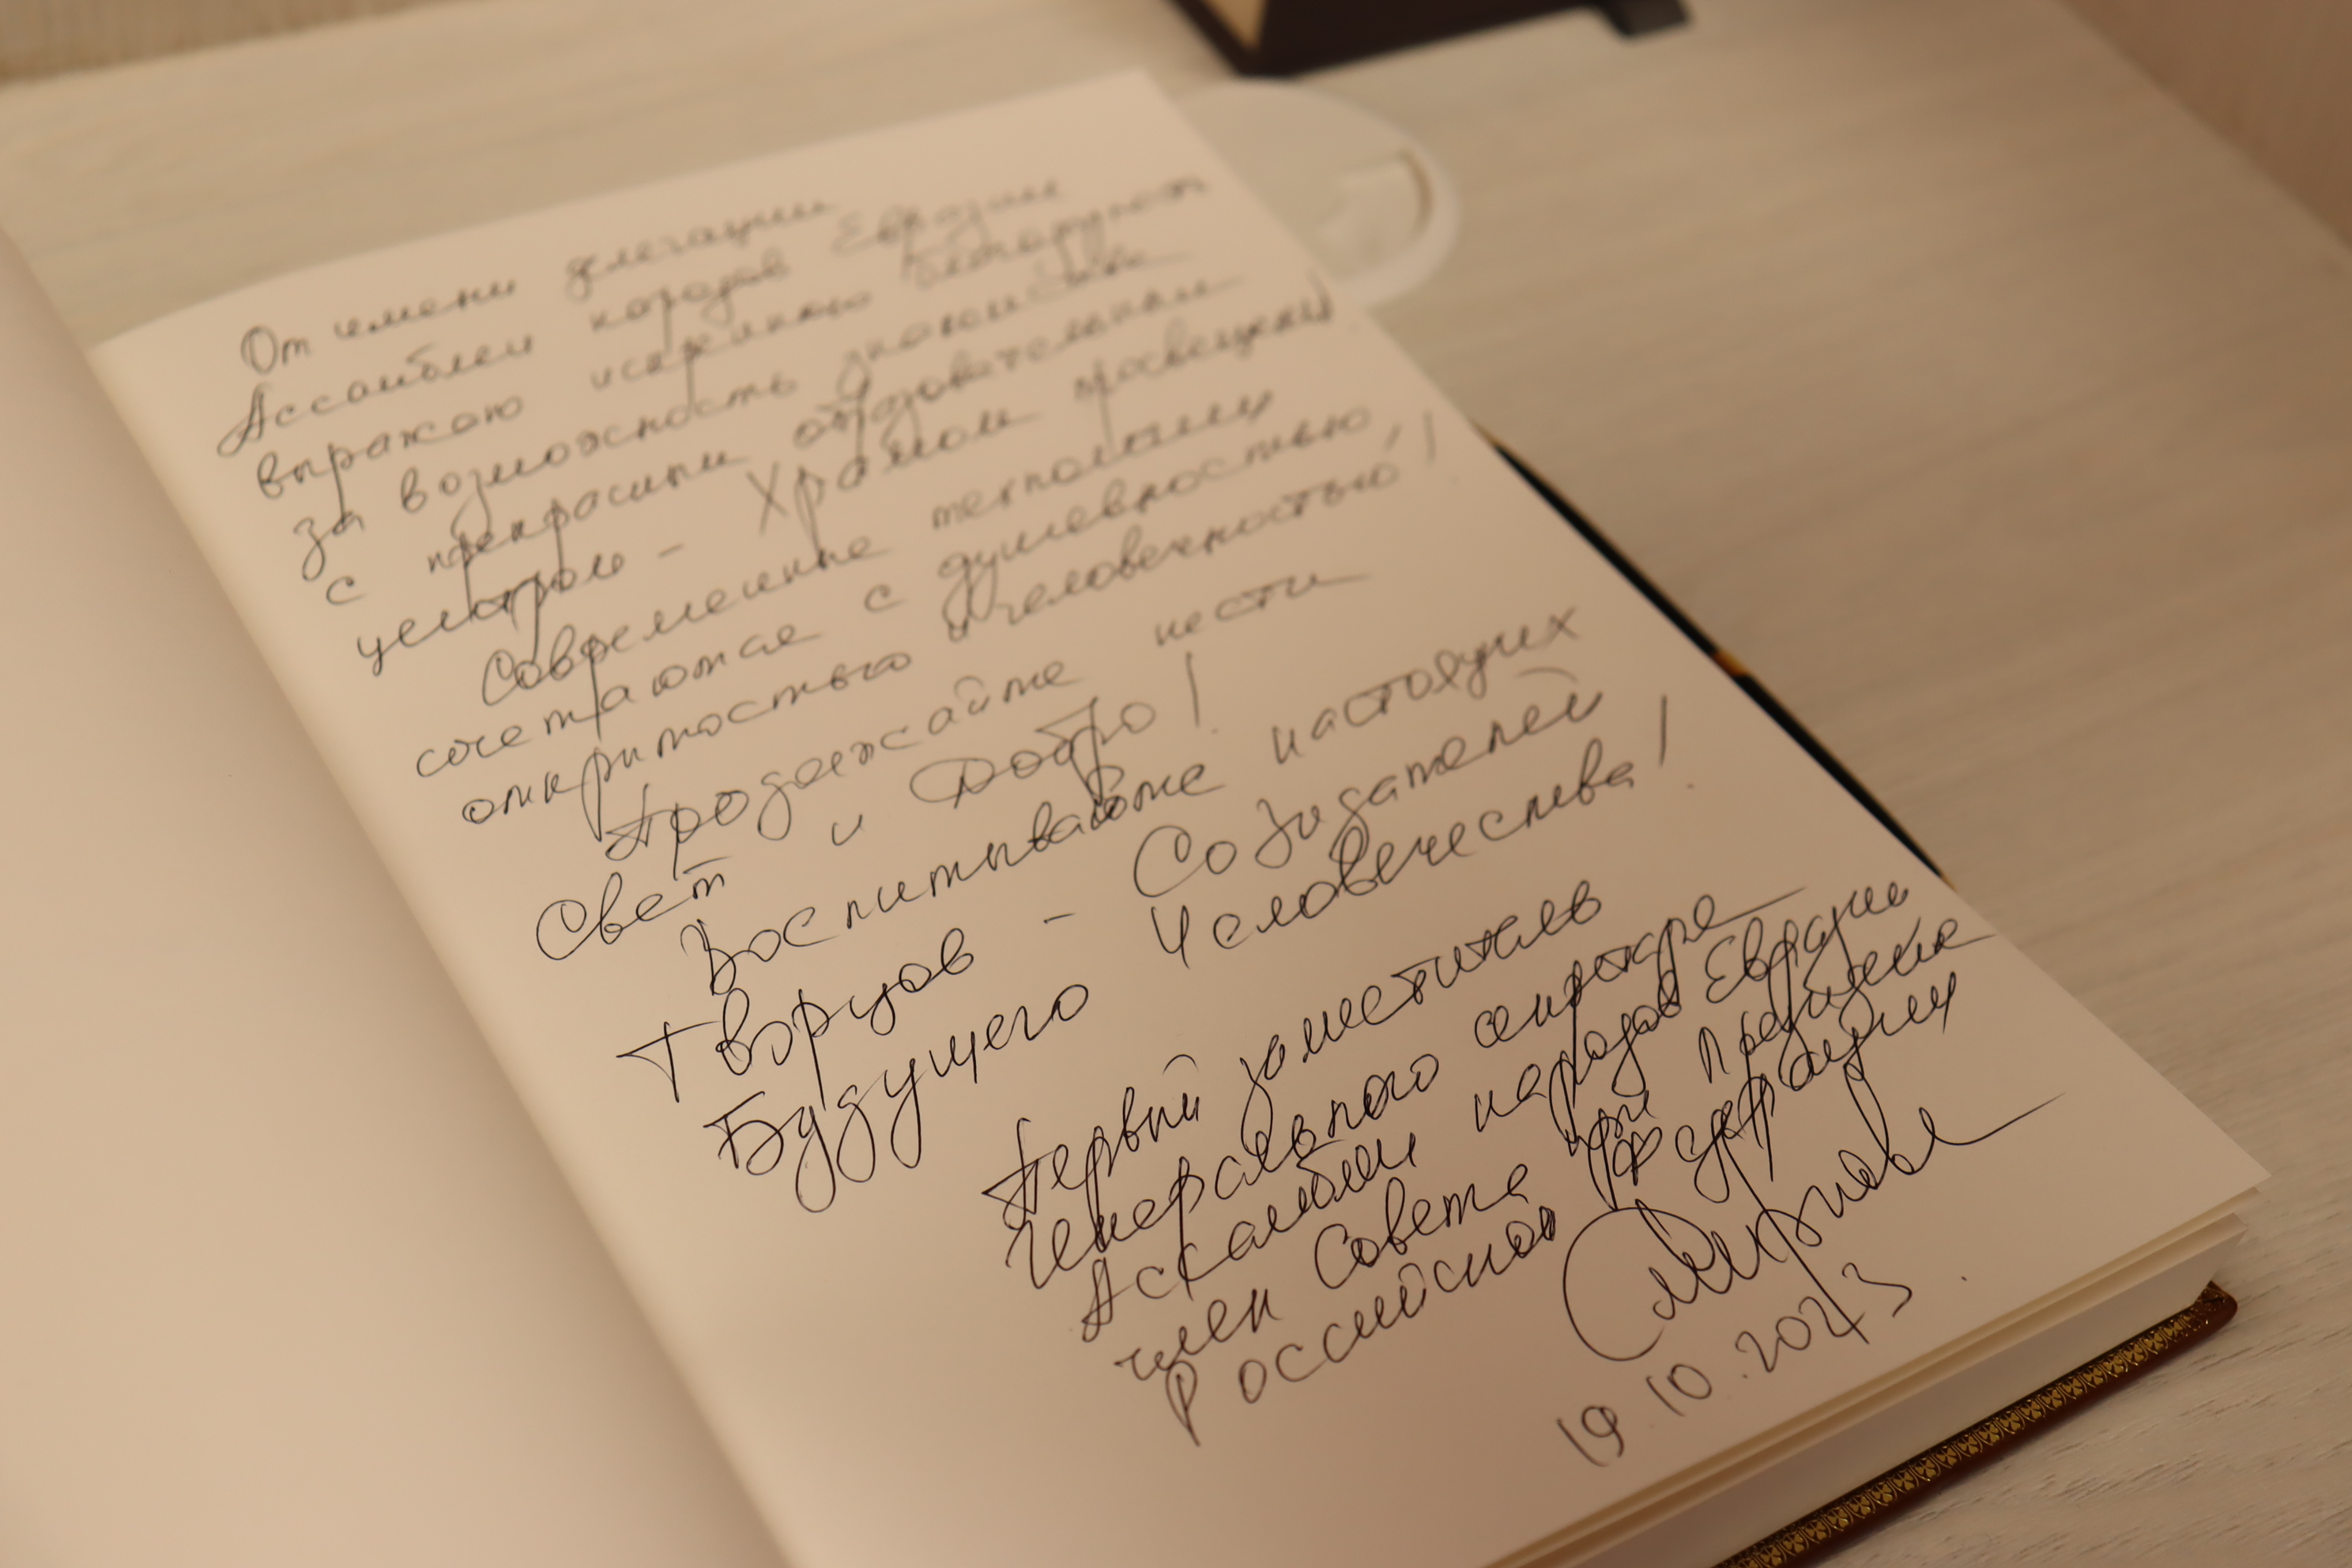 От имени делегации
Ассамблеи народов Евразии
выражаю искреннюю благодарность
за возможность знакомства
с прекрасным образовательным
центром - Храмом просвещения!
Современные технологии
сочетаются с душевностью,
открытостью и человечностью!
Продолжайте нести
Свет и Добро!
Воспитывайте настоящих
Творцов - Созидателей
Будущего Человечества!
Первый заместитель
Генерального секретаря
Ассамблеи народов Евразии
член Совета при Президенте
Российской Федерации
19.10.2023.